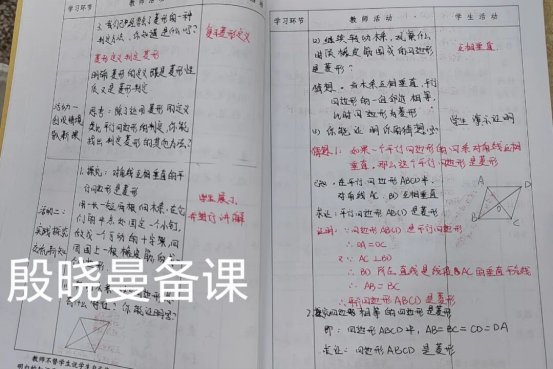 学习环节
教 师 活 动
2. 我们已经学会了菱形的一种
判定方法,你知道是什么吗?
复习菱形定义
菱形定义判定菱形
明确 菱形的定义既是菱形性
质又是菱形判定
活动一
创设情境
导新课
思考:除了运用菱形的定义
类比平行四边形的判定,你能
找出判定菱形的其他方法?
1. 探究:对角线互相垂直的平
行四边形是菱形
用一长一短两根细木条,在它
们的中点处固定一个小钉,
做成一个可转动的十字架,四
周围上一根橡皮筋
学生展示
并进行讲解
活动二:
实践探究
交流新知
你能证明吗?
殷晓曼备课
教师不替学生说学生自己
学习环节
教 师 活 动
学 生 活 动
(2) 继续转动木条,观察什么
时候橡皮筋围成的四边形
是菱形?
互相垂直
猜想:当木条互相垂直,平行
四边形的一组邻边相等,
此时四边形为菱形
(3) 你能证明你的猜想吗
学生演示证明
猜想1. 如果一个平行四边形的两条对角线互相
垂直,那么这个平行四边形是菱形
已知:在平行四边形ABCD中,
对角线AC、BD互相垂直
求证:平行四边形ABCD是菱形
A
D
B
C
O
证明:∵四边形ABCD是平行四边形
∴OA=OC
又∵AC⊥BD
∴BD所在直线是线段AC的垂直平分线
∴AB=BC
∴平行四边形ABCD是菱形
四边相等的四边形是菱形
即:四边形ABCD中,AB=BC=CD=DA
求证:四边形ABCD是菱形